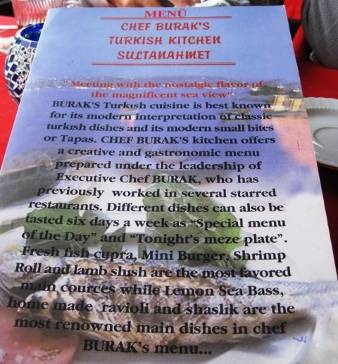 MENÜ
CHEF BURAK'S
TURKISH KITCHEN
SULTANAHMET
"Meeting with the nostalgic flavor of
the magnificent sea view"
BURAK'S Turkish cuisine is best known
for its modern interpretation of classic
turkish dishes and its modern small bites
or Tapas. CHEF BURAK'S kitchen offers
a creative and gastronomic menu
prepared under the leadership of
Executive Chef BURAK, who has
previously worked in several starred
restaurants. Different dishes can also be
tasted six days a week as "Special menu
of the Day" and "Tonight's meze plate".
Fresh fish cupra, Mini Burger, Shrimp
Roll and lamb shish are the most favored
main cources while Lemon Sea Bass,
home made ravioli and shaslik are the
most renowned main dishes in chef
BURAK's menu...